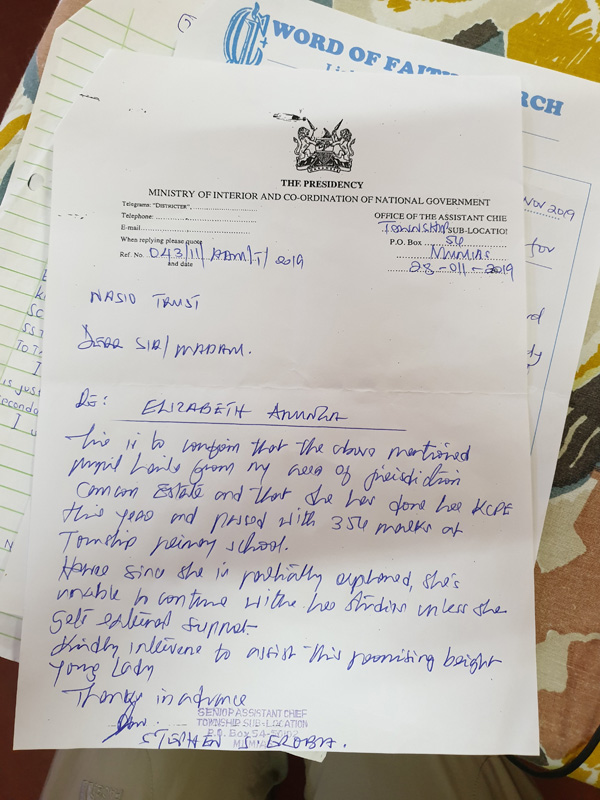 WORD OF FAITH CHURCH
THE PRESIDENCY
MINISTRY OF INTERIOR AND CO-ORDINATION OF NATIONAL GOVERNMENT
Telegrams: "DISTRICTER",
Telephone:
E-mail
When replying please quote
Ref. No. 043/11/ADM/T/2019
and date
OFFICE OF THE ASSISTANT CHIE
TOWNSHIP SUB-LOCATIO
P.O. Box 54
MUMIAS
28-011-2019
NOV 2019
for
NASIO TRUST
DEAR SIR/MADAM.
RE: ELIZABETH AMUNZA
This is to confirm that the above mentioned
pupil hails from my area of jurisdiction
Camcon Estate and that she has done her KCPE
this year and passed with 356 marks at
Township primary school.
Hence since she is partially orphaned, she's
unable to continue withe her studies unless she
gets external support.
Kindly intervene to assist this promising bright
young lady
Thanks in advance
SENIOR ASSISTANT CHIEF
TOWNSHIP SUB-LOCATION
P.O. Box 54-50102
MUMIA
STEPHEN S. EROBA.